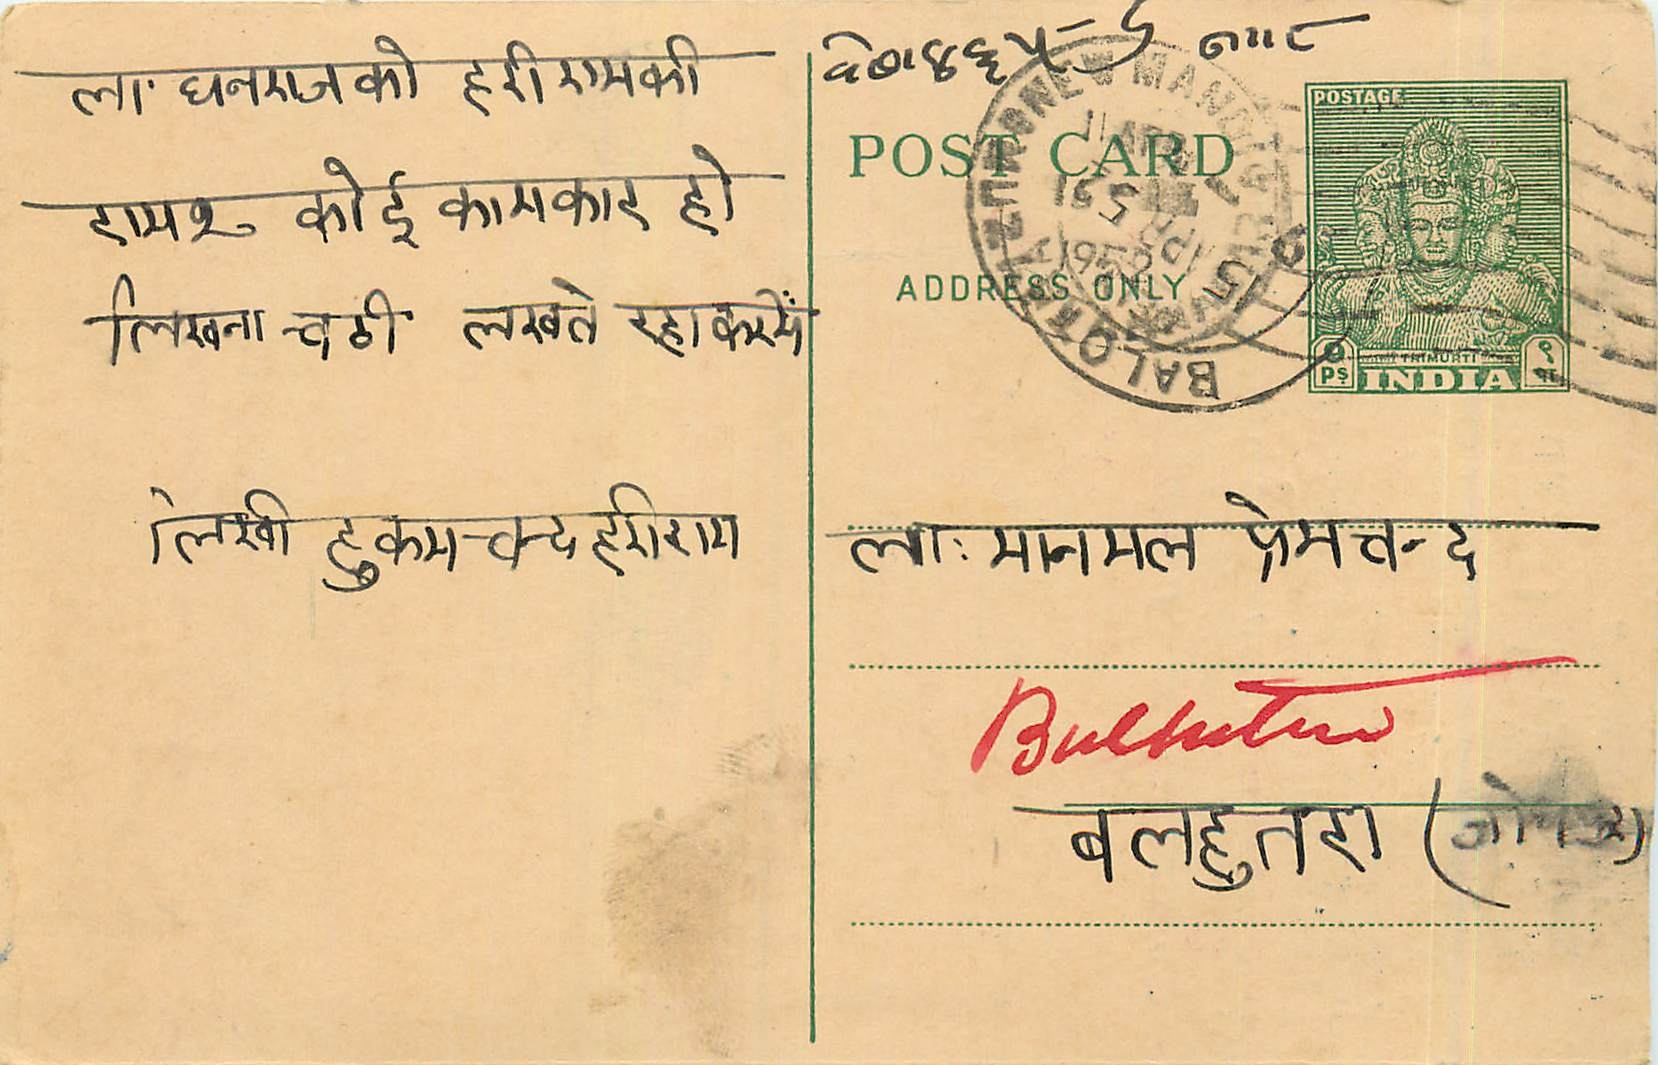 ला: धनराज को हरी रामकी
राम२ कोई कामकार हो
लिखना चठी लखते रहा करयें
लिखी हुकमचन्द हरीराम
POST CARD
ADDRESS ONLY
POSTAGE
TRIMURTI
INDIA
9 Ps
९ पा
NEW MANDI
BALOTRA
1952
ला: मानमल प्रेमचन्द
Balhutra
बलहुतरा (जोधपुर)